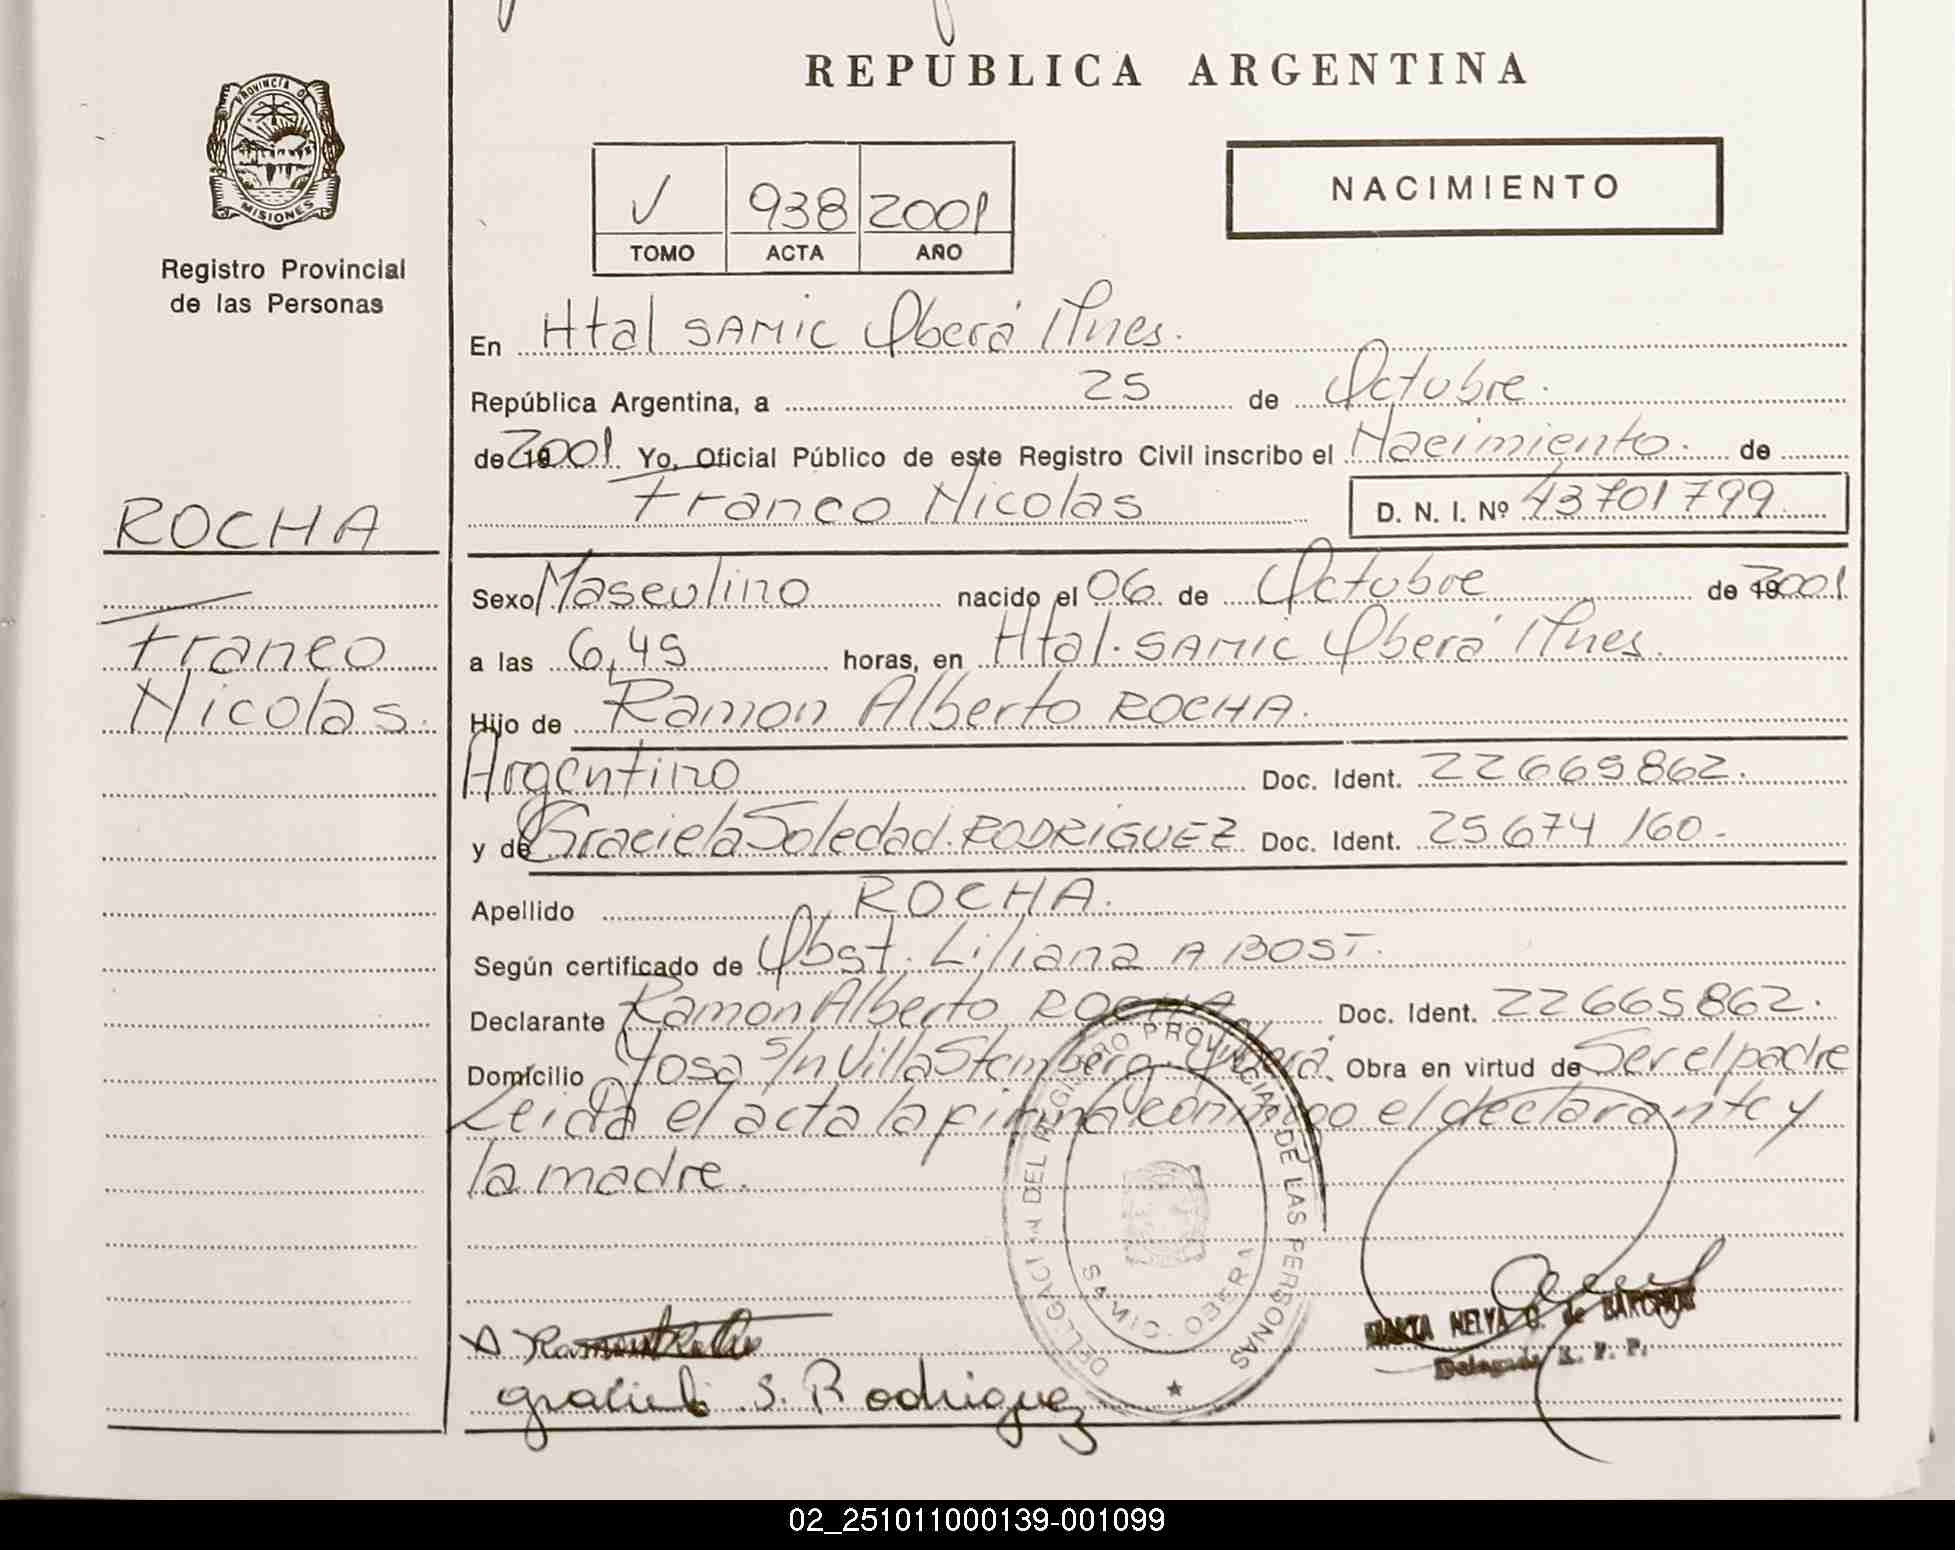 PROVINCIA DE
MISIONES
Registro Provincial
de las Personas
ROCHA
Franco
Nicolas.
REPUBLICA ARGENTINA
V 938 2001
TOMO ACTA AÑO
NACIMIENTO
En Htal SAMIC Oberá Mnes.
República Argentina, a 25 de Octubre.
de 2001 Yo, Oficial Público de este Registro Civil inscribo el Nacimiento. de
Franco Nicolas D. N. I. Nº 43701799
Sexo Masculino nacido el 06 de Octubre de 2001
a las 6,45 horas, en Htal. SAMIC Oberá Mnes.
Hijo de Ramon Alberto ROCHA.
Argentino Doc. Ident. 22665862.
y de Graciela Soledad. RODRIGUEZ Doc. Ident. 25674160.
Apellido ROCHA.
Según certificado de Obst. Liliana A BOST.
Declarante Ramon Alberto ROCHA Doc. Ident. 22665862.
Domicilio Yosa s/n Villa Stemberg. Oberá. Obra en virtud de Ser el padre
Leida el acta la firma conmigo el declarante y
la madre.
DELEGACION DEL REGISTRO PROVINCIAL DE LAS PERSONAS
SAMIC. OBERA
MARTA NELVA O. de
Delegada R. P. P.
Graciela S. Rodriguez
02_251011000139-001099